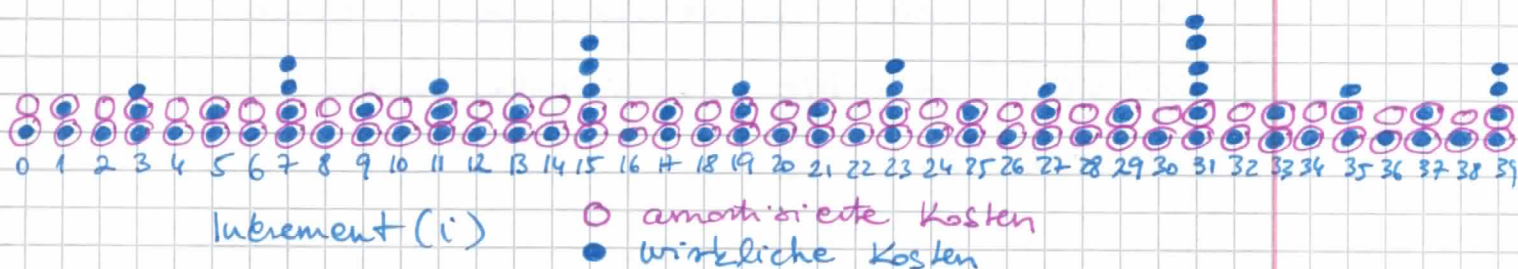 0 1 2 3 4 5 6 7 8 9 10 11 12 13 14 15 16 17 18 19 20 21 22 23 24 25 26 27 28 29 30 31 32 33 34 35 36 37 38 39
Inkrement (i)
amortisierte Kosten
wirkliche Kosten